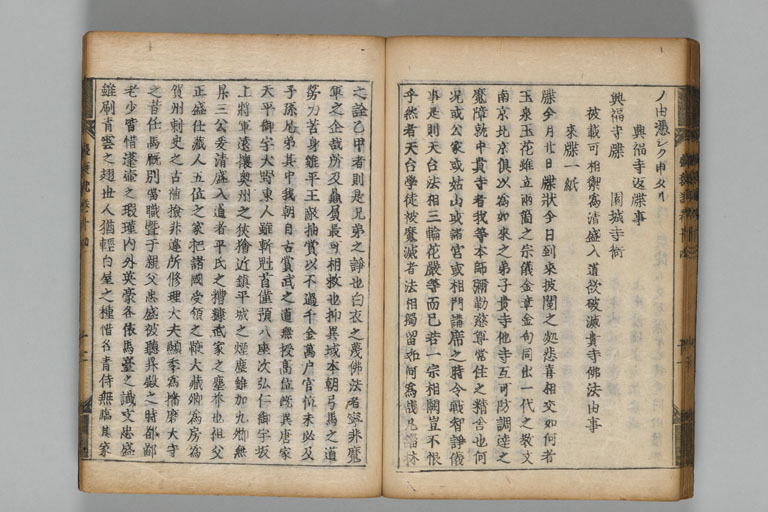 ノ由憑シク申タリ
興福寺返牒事
興福寺牒 園城寺衙
被載可相禦為清盛入道欲破滅貴寺佛法由事
來牒一紙
牒今月廿日牒狀今日到來披閲之処悲喜相交如何者
玉泉玉花雖立兩箇之宗儀金章金句同出一代之教文
南京北京俱以為如來之弟子貴寺他寺互可防調達之
魔障就中貴寺者我等本師彌勒慈尊常住之精舍也何
况或公家或姑山或諸宮或相門講席之時令戦智諍儀
事是則天台法相三輪花嚴等而已若一宗相闕豈不恨
乎然者天台學徒被魔滅者法相獨留如何為哉凡緇林
之詮乙甲者則是兄弟之諍也白衣之蔑佛法者寧非魔
軍之企哉所及贔屓最可相救也抑異域本朝弓馬之道
勞力苦身雖平王敵抽賞以不過千金萬戶官位未必及
子孫兄弟其中我朝自古賞武之道無授高位既異唐家
天平御宇大野東人雖斬兇首僅預八座次弘仁御宇坂
上將軍遠攘奥州之狭獪近鎮平城之煙塵雖加九卿無
昇三公爰清盛入道者平氏之糟糠武家之塵芥也祖父
正盛仕藏人五位之家把諸國受領之鞭大藏卿為房為
賀州刺史之古補撿非違所修理大夫顕季為播磨大守
之昔任馬厩別當職曁于親父忠盛被聽昇殿之時都鄙
老少皆惜蓬壷之瑕瑾内外英豪各依馬臺之讖文忠盛
雖刷青雲之翅世人猶輕白屋之種惜名青侍無臨其家